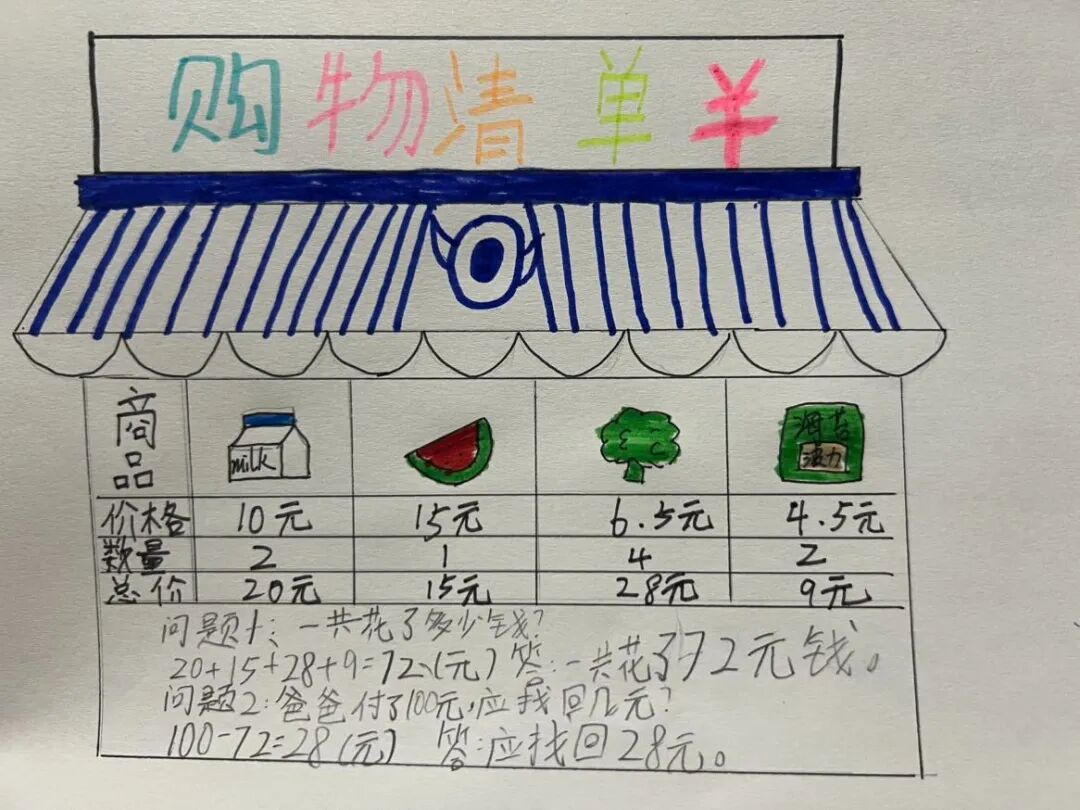 购物清单¥
商品 milk 海苔 波力
价格 10元 15元 6.5元 4.5元
数量 2 1 4 2
总价 20元 15元 28元 9元
问题1、一共花了多少钱?
20+15+28+9=72(元) 答:一共花了72元钱。
问题2:爸爸付了100元,应找回几元?
100-72=28(元) 答:应找回28元。